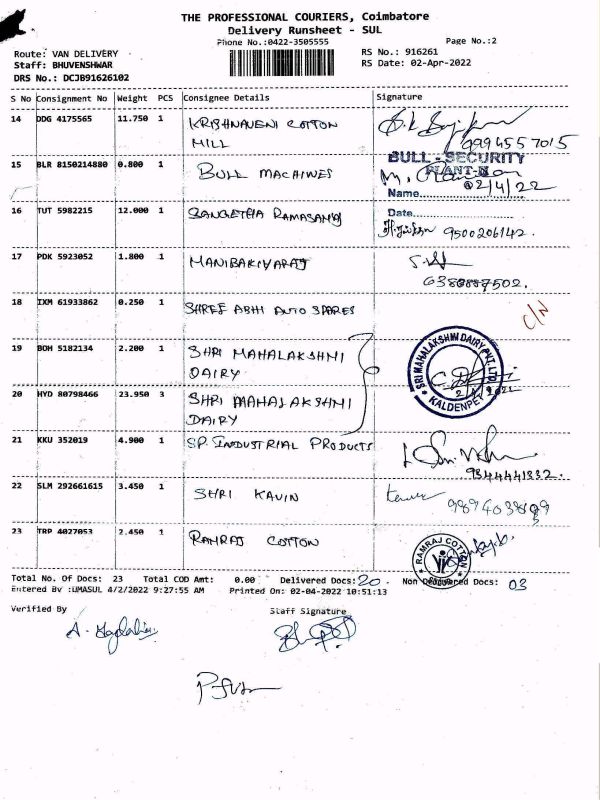 THE PROFESSIONAL COURIERS, Coimbatore
Delivery Runsheet - SUL
Phone No.:0422-3505555
Page No.:2
Route: VAN DELIVERY
Staff: BHUVENSHWAR
DRS No.: DCJB91626102
RS No.: 916261
RS Date: 02-Apr-2022
S No Consignment No Weight PCS Consignee Details Signature
14 DDG 4175565 11.750 1 KRISHNAVENI COTTON
MILL
9994557015
15 BLR 8150214880 0.800 1 BULL MACHINES
BULL - SECURITY
PLANT-
Name..................
02/4/22
16 TUT 5982215 12.000 1 SANGETHA RAMASAMY
Date..................
9500206142.
17 PDK 5923052 1.800 1 MANIBAKIYARAJ
6380887502.
18 IXM 61933862 0.250 1 SHREE ABHI AUTO SPARES
C/N
19 BOM 5182134 2.200 1 SHRI MAHALAKSHMI
DAIRY
SRI MAHALAKSHMI DAIRY PVT. LTD
KALDENPET
20 HYD 80798466 23.950 3 SHRI MAHALAKSHMI
DAIRY
21 KKU 352019 4.900 1 SP. INDUSTRIAL PRODUCTS
9344441332.
22 SLM 292661615 3.450 1 SHRI KAVIN
23 TRP 4027053 2.450 1 RAMRAJ COTTON
RAMRAJ COTTON
Total No. Of Docs: 23 Total COD Amt: 0.00 Delivered Docs: 20. Non Delivered Docs: 03
Entered By :UMASUL 4/2/2022 9:27:55 AM Printed On: 02-04-2022 10:51:13
Verified By
Staff Signature